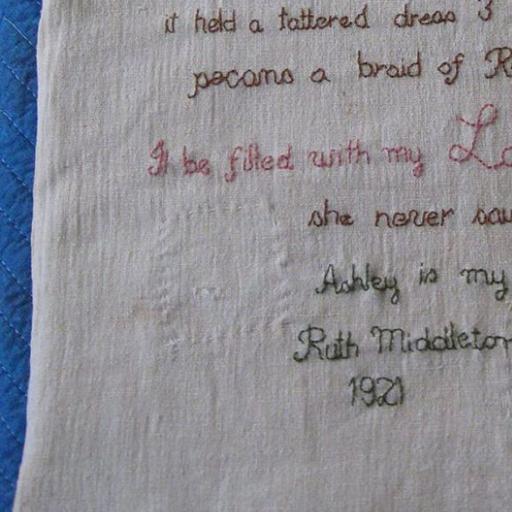 it held a tattered dress 3
pecans a braid of R
It be filled with my Lo
she never saw
Ashley is my
Ruth Middleton
1921